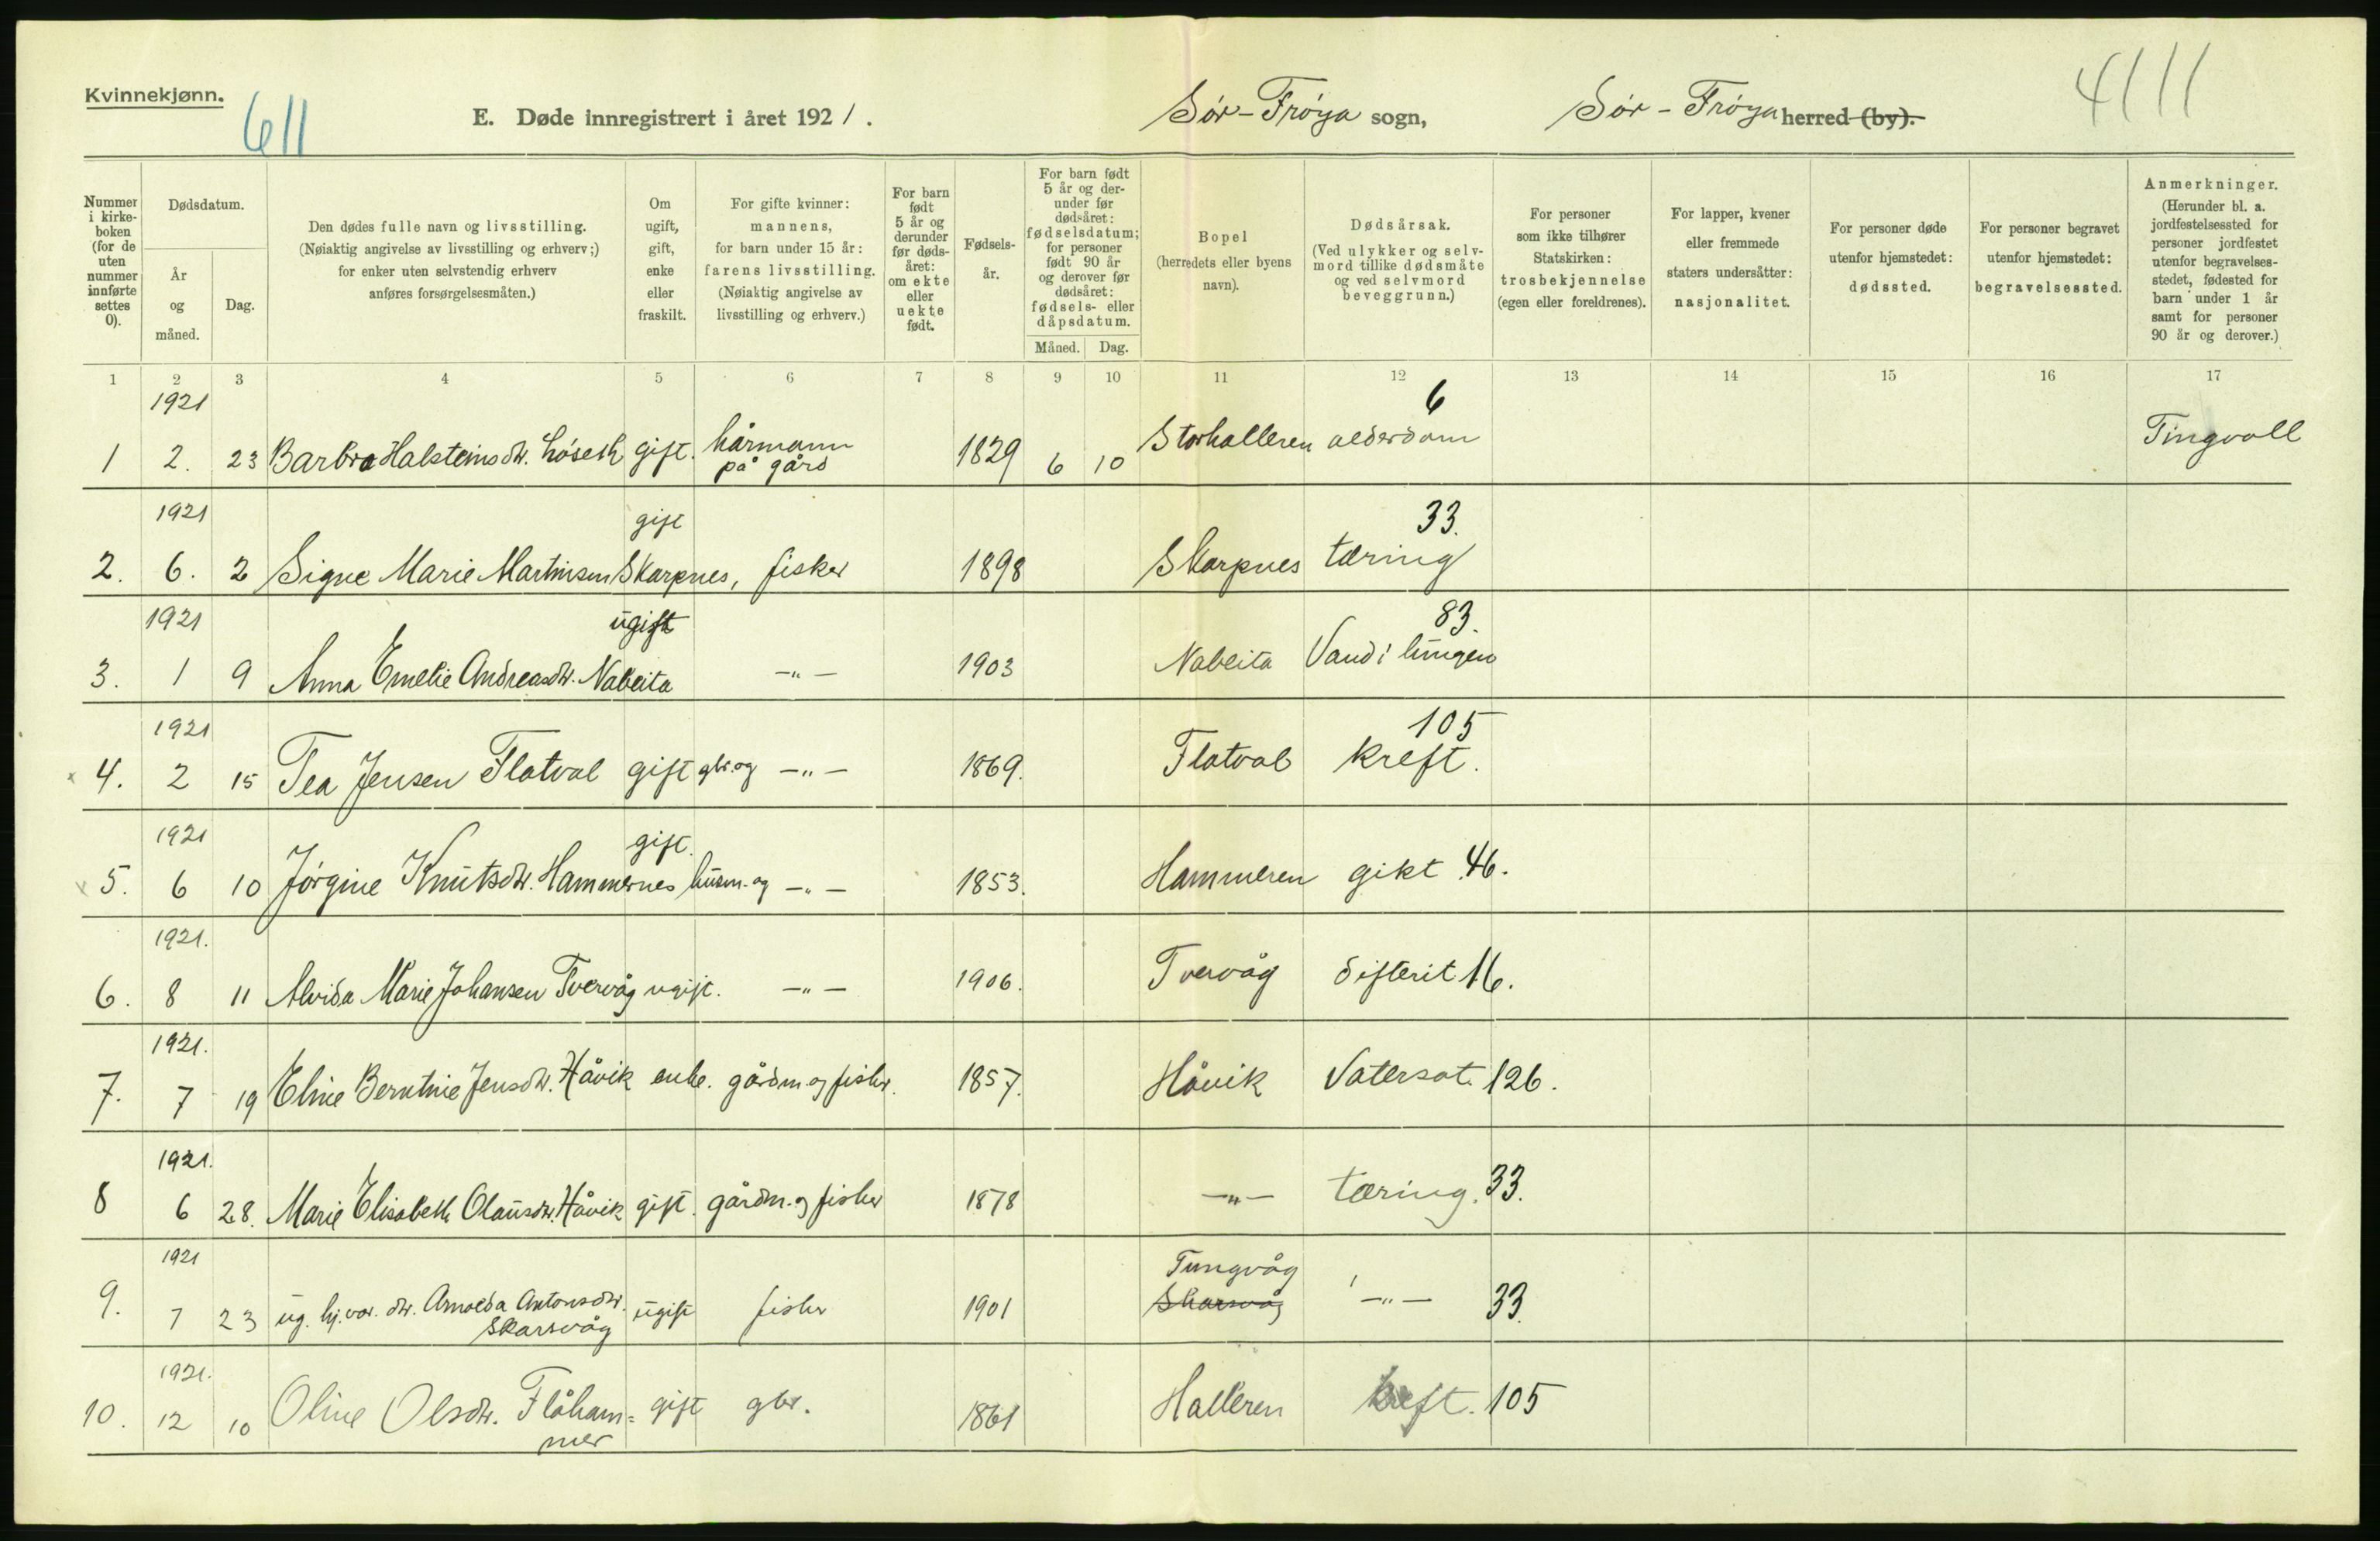 Kvinnekjønn.
611
E. Døde innregistrert i året 1921.
Sør-Frøya sogn,
Sør-Frøya herred (by).
4111
Nummer i kirke-boken (for de uten nummer innførte settes 0).
Dødsdatum.
År og måned.
Dag.
Den dødes fulle navn og livsstilling.
(Nøiaktig angivelse av livsstilling og erhverv;)
for enker uten selvstendig erhverv
anføres forsørgelsesmåten.)
Om ugift, gift, enke eller fraskilt.
For gifte kvinner: mannens, for barn under 15 år: farens livsstilling. (Nøiaktig angivelse av livsstilling og erhverv.)
For barn født 5 år og derunder før døds-året: om ekte eller uekte født.
Fødsels-år.
For barn født 5 år og der-under før dødsåret: fødselsdatum; for personer født 90 år og derover før dødsåret: fødsels- eller dåpsdatum.
Måned. Dag.
Bopel (herredets eller byens navn).
Dødsårsak. (Ved ulykker og selv-mord tillike dødsmåte og ved selvmord beveggrunn.)
For personer som ikke tilhører Statskirken: trosbekjennelse (egen eller foreldrenes).
For lapper, kvener eller fremmede staters undersåtter: nasjonalitet.
For personer døde utenfor hjemstedet: dødssted.
For personer begravet utenfor hjemstedet: begravelsessted.
Anmerkninger. (Herunder bl. a. jordfestelsessted for personer jordfestet utenfor begravelses-stedet, fødested for barn under 1 år samt for personer 90 år og derover.)
1 2 3 4 5 6 7 8 9 10 11 12 13 14 15 16 17
1921 6
1 2. 23 Barbra Halsteinsdtr. Løseth gift. kårmann på gård 1829 6 10 Storhalleren alderdom Tingvoll
1921 gift 33.
2. 6. 2 Signe Marie Martinsen Skarpnes, fisker 1898 Skarpnes tæring
1921 ugift 83.
3. 1 9 Anna Emelie Andreasdtr. Nabeita —"— 1903 Nabeita Vand i lungen
1921 105
4. 2 15 Tea Jensen Flatval gift gbr. og —"— 1869. Flatval kreft.
1921 gift.
5. 6 10 Jørgine Knutsdtr. Hammernes husm. og —"— 1853. Hammeren gikt 46.
1921.
6. 8 11 Alvida Marie Johansen Tvervåg ugift. —"— 1906. Tvervåg difterit 16.
1921.
7. 7 19 Eline Berntine Jensdtr. Håvik enke. gårdm. og fisker. 1857. Håvik Vatersot. 126.
1921.
8 6 28. Marie Elisabeth Olausdtr. Håvik gift. gårdm. og fisker 1878 —"— tæring. 33.
1921 Tungvåg
9. 7 23 ug. hj.vær. dtr. Arnolda Antonsdtr. Skarsvåg ugift fisker 1901 Skarsvåg —"— 33.
1921.
10. 12 10 Oline Olsdtr. Flåham=mer gift gbr. 1861 Halleren kreft. 105